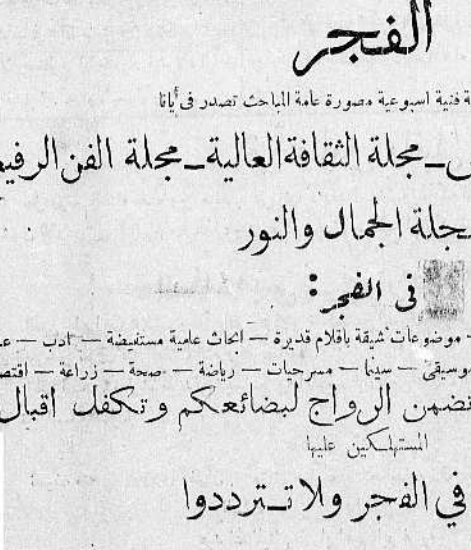 الفجر
فنية اسبوعية مصورة عامة المباحث تصدر في يافا
مجلة الثقافة العالية ـ مجلة الفن الرفيع
الجمال والنور
في الفجر :
موضوعات شيقة باقلام قديرة — ابحاث علمية مستفيضة — ادب —
— سينما — مسرحيات — رياضة — صحة — زراعة —
الرواج لبضائعكم وتكفل اقبال
المستهلكين عليها
في الفجر ولا تترددوا